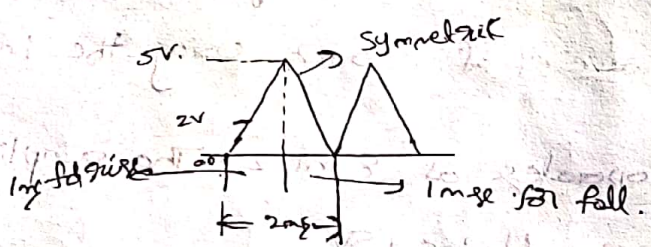 5V.
Symmetric
2V
00
1ms for rise
1 mse for fall.
2ms